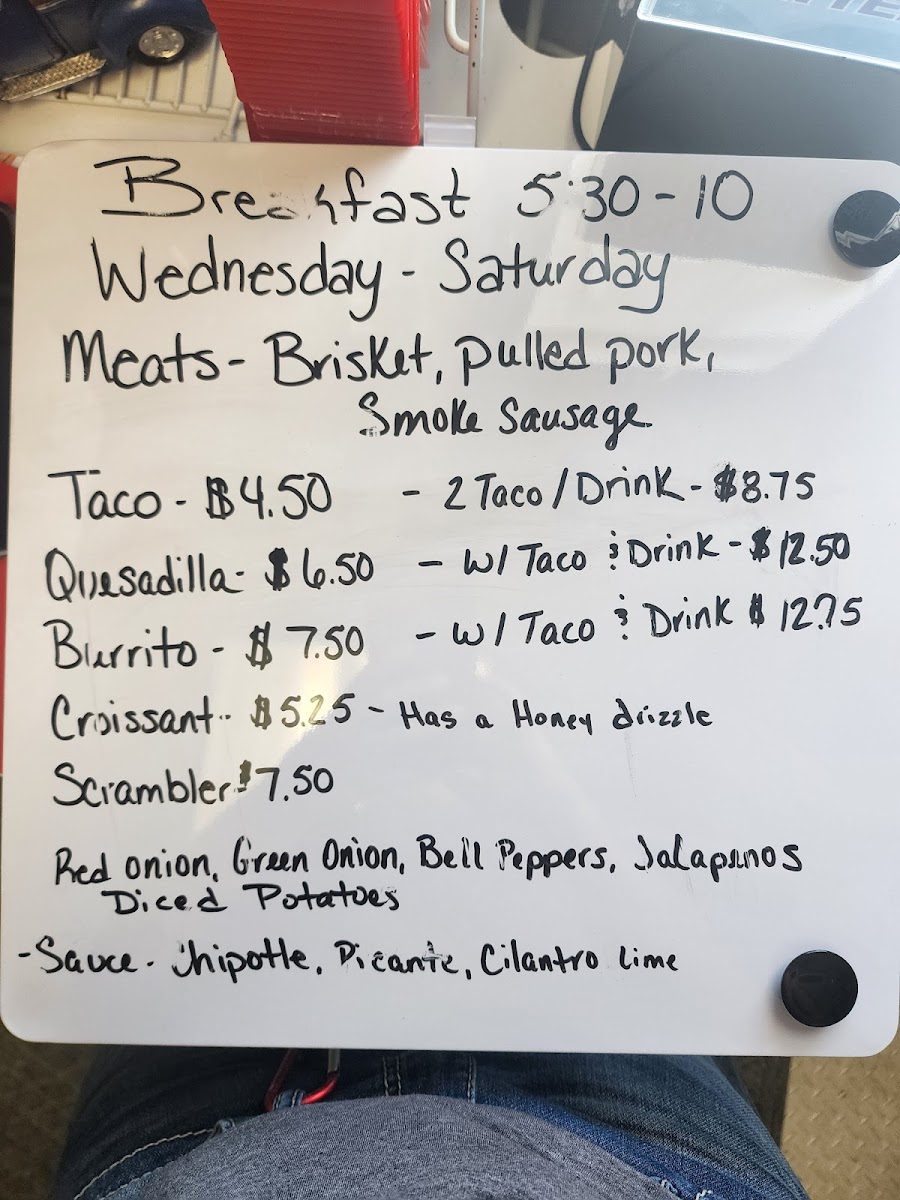 Breakfast 5:30-10
Wednesday - Saturday
Meats- Brisket, pulled pork,
Smoke Sausage
Taco - $4.50 - 2 Taco/Drink - $8.75
Quesadilla- $6.50 - w/ Taco & Drink - $12.50
Burrito - $7.50 - w/ Taco & Drink $12.75
Croissant-- $5.25 - Has a Honey drizzle
Scrambler $7.50
Red onion, Green Onion, Bell Peppers, Jalapenos
Diced Potatoes
-Sauce - Chipotle, Picante, Cilantro Lime